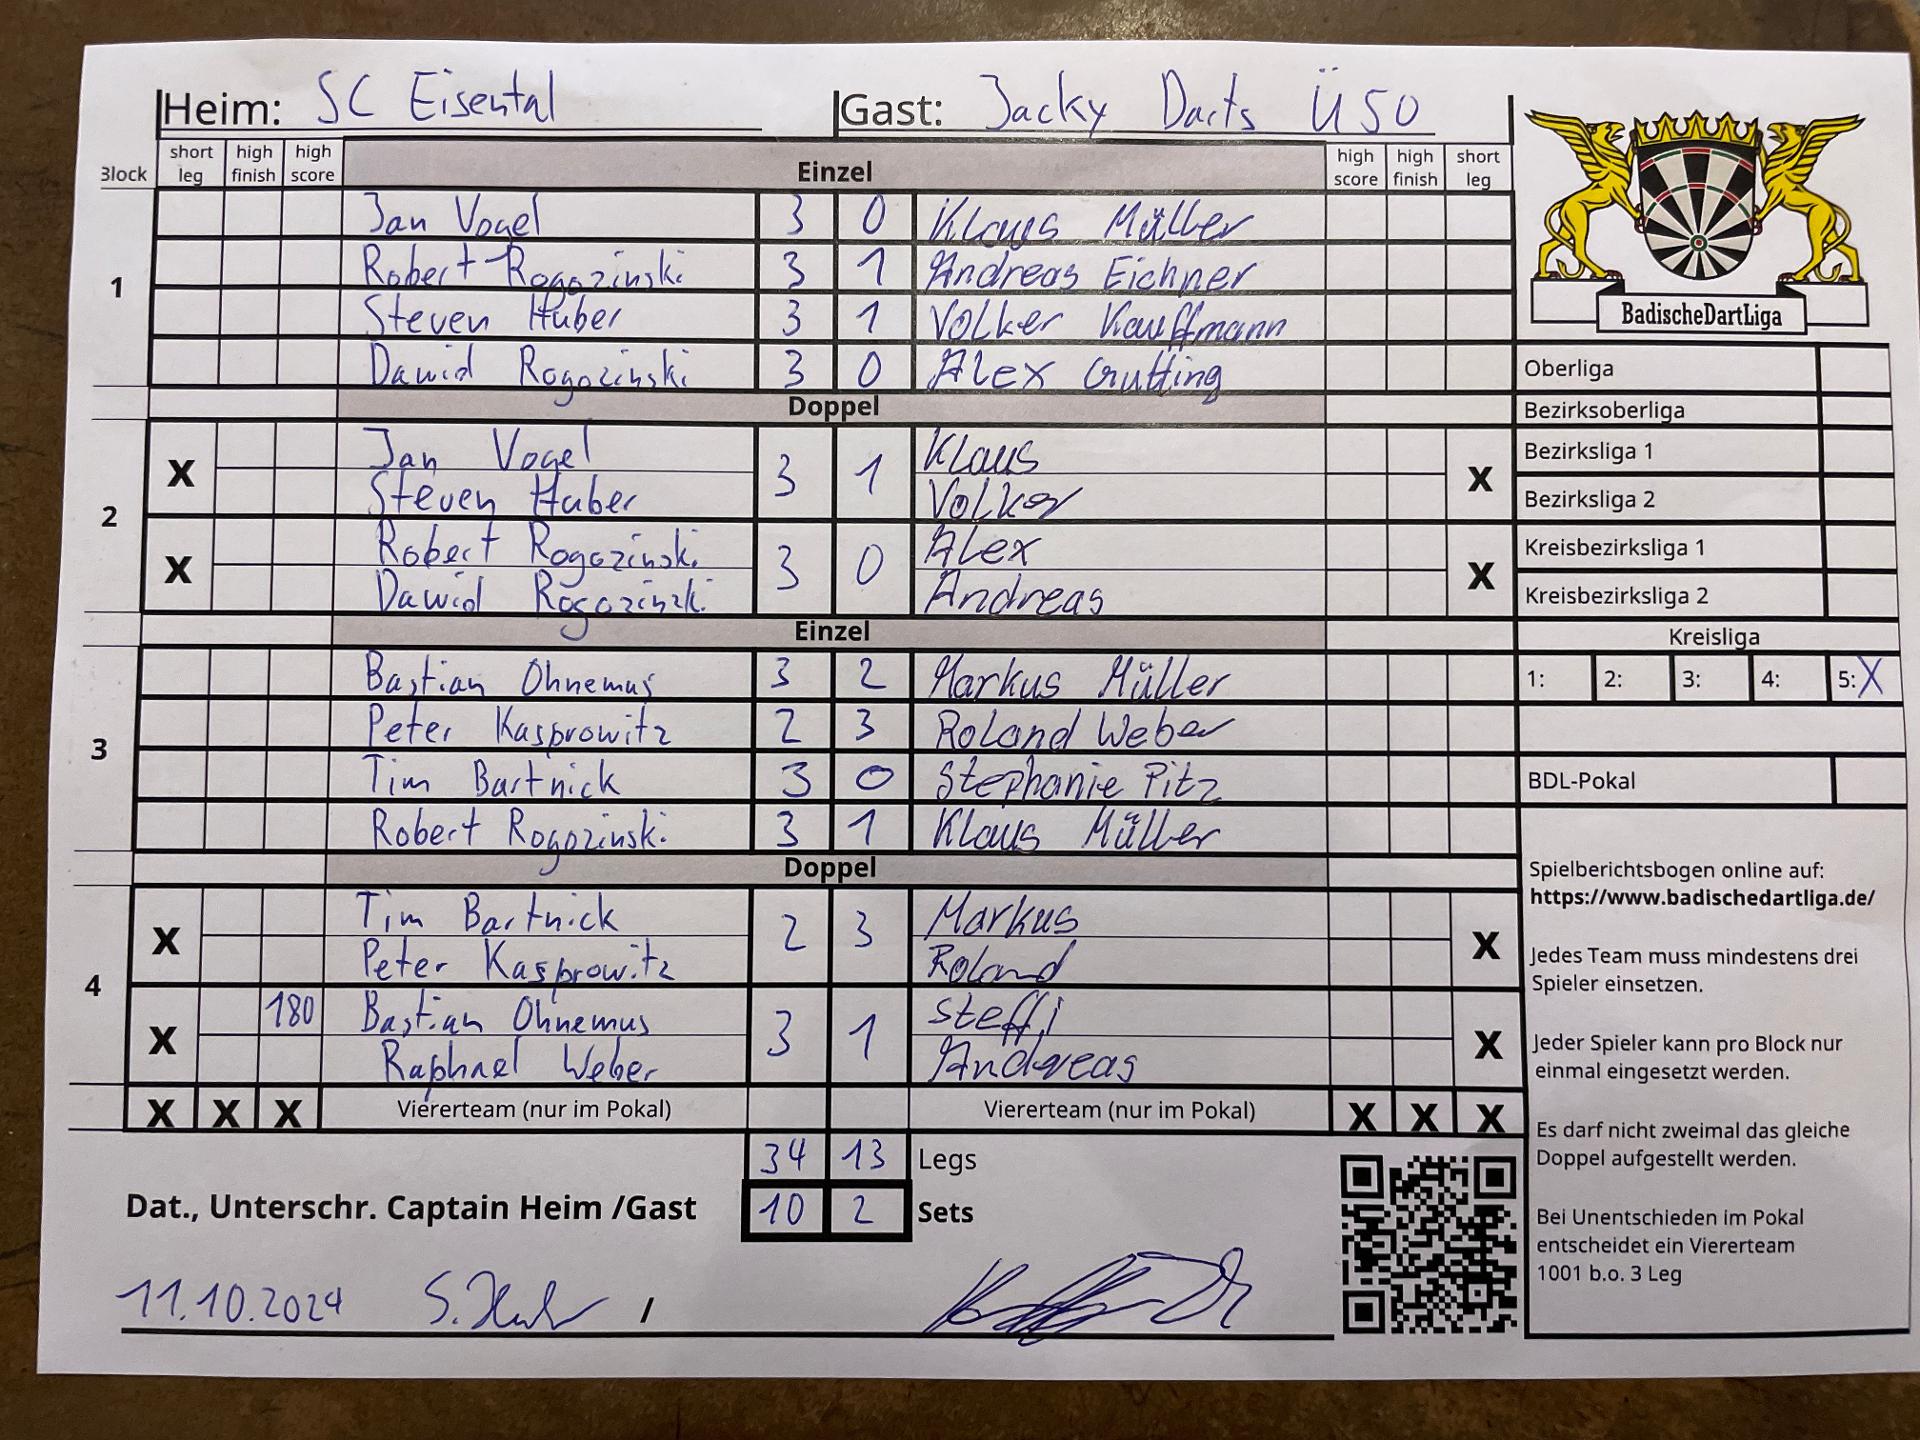 Heim: SC Eisental Gast: Jacky Darts Ü50
Block short leg high finish high score Einzel high score high finish short leg
1
Jan Vogel 3 0 Klaus Müller
Robert Rogozinski 3 1 Andreas Eichner
Steven Huber 3 1 Volker Kauffmann
Dawid Rogozinski 3 0 Alex Grutting
Doppel
2
X Jan Vogel 3 1 Klaus X
Steven Huber Volker
X Robert Rogozinski 3 0 Alex X
Dawid Rogozinski Andreas
Einzel
3
Bastian Ohnemus 3 2 Markus Müller
Peter Kasprowitz 2 3 Roland Weber
Tim Bartnick 3 0 Stephanie Pitz
Robert Rogozinski 3 1 Klaus Müller
Doppel
4
X Tim Bartnick 2 3 Markus X
Peter Kasprowitz Roland
X 180 Bastian Ohnemus 3 1 Steffi X
Raphael Weber Andreas
X X X Viererteam (nur im Pokal) Viererteam (nur im Pokal) X X X
34 13 Legs
Dat., Unterschr. Captain Heim /Gast 10 2 Sets
11.10.2024 S. Huber /
BadischeDartLiga
Oberliga
Bezirksoberliga
Bezirksliga 1
Bezirksliga 2
Kreisbezirksliga 1
Kreisbezirksliga 2
Kreisliga
1: 2: 3: 4: 5: X
BDL-Pokal
Spielberichtsbogen online auf:
https://www.badischedartliga.de/
Jedes Team muss mindestens drei
Spieler einsetzen.
Jeder Spieler kann pro Block nur
einmal eingesetzt werden.
Es darf nicht zweimal das gleiche
Doppel aufgestellt werden.
Bei Unentschieden im Pokal
entscheidet ein Viererteam
1001 b.o. 3 Leg